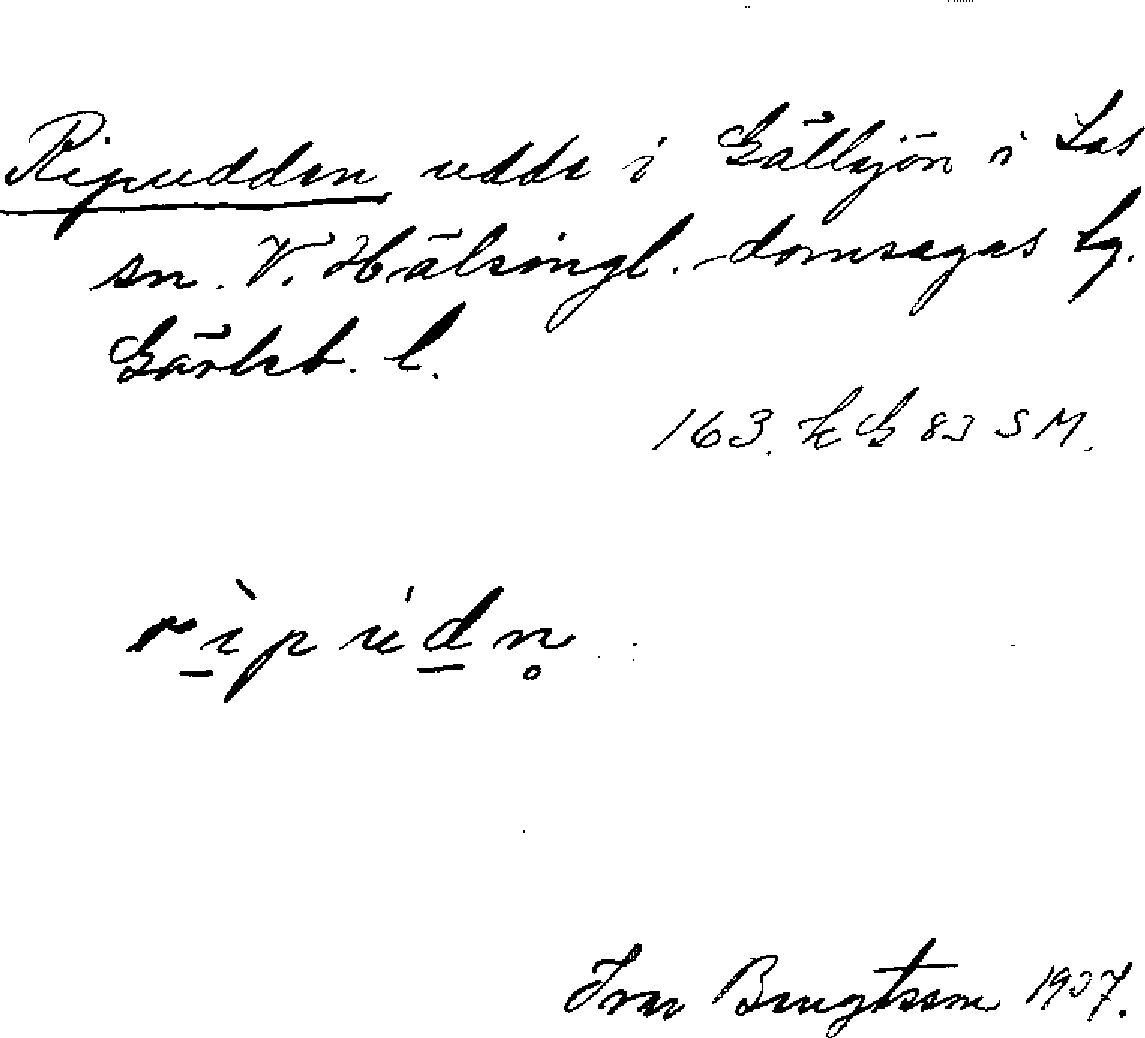 Ripudden udde i Gällsjön i Los
sn. V. Hälsingl. domsagas tg.
Gävleb. l.
163. k G 83 SM.
rìpúdn̥
Ivar Bengtsson 1937.